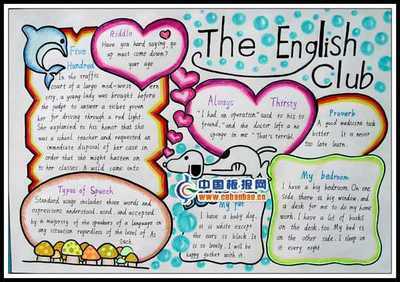 The English
Club
Riddle
Have you hard saying, go
up must come down?
your age
Five
Hundred
In the traffic
court of a large mid-west-ern
cry, a young lady was brought before
the judge to answer a ticket given
her for driving through a red light.
She explained to his honor that she
was a school teacher and requested an
immediate disposal of her case in
order that she might hasten on
to her classes. A wild came onto
Always Thirsty
"I had an operation" said to his
friend, "and the doctor left a
sponge in me." "That's terrible
Proverb
A good medicine took
better. It is never
too late learn.
Types of Speech
Standard usage includes those words and
expressions understood, used, and accepted
by a majority of the speakers of a language in
any situation regardless of the level of
Such
My pet
I have a baby dog.
it is white except
the ears is black. It
is so lovely. I will be
happy gather with it.
My bedroom
I have a big bedroom. On one
side there is big window and
a desk for me to do my home
work. I have a lot of books
on the desk, too. My bed is
on the other side. I sleep on
it every night.
中国板报网
www.cnbanbao.cn